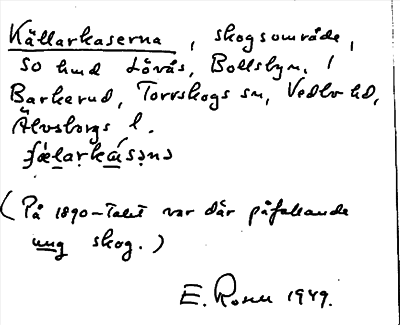 Källarkaserna, skogsområde,
SO hmd Lövås, Bollsbyn, 1
Barkerud, Torrskogs sn, Vedbo hd,
Älvsborgs l.
(På 1890-talet var där påfallande
ung skog.)
E. Rosell 1949.